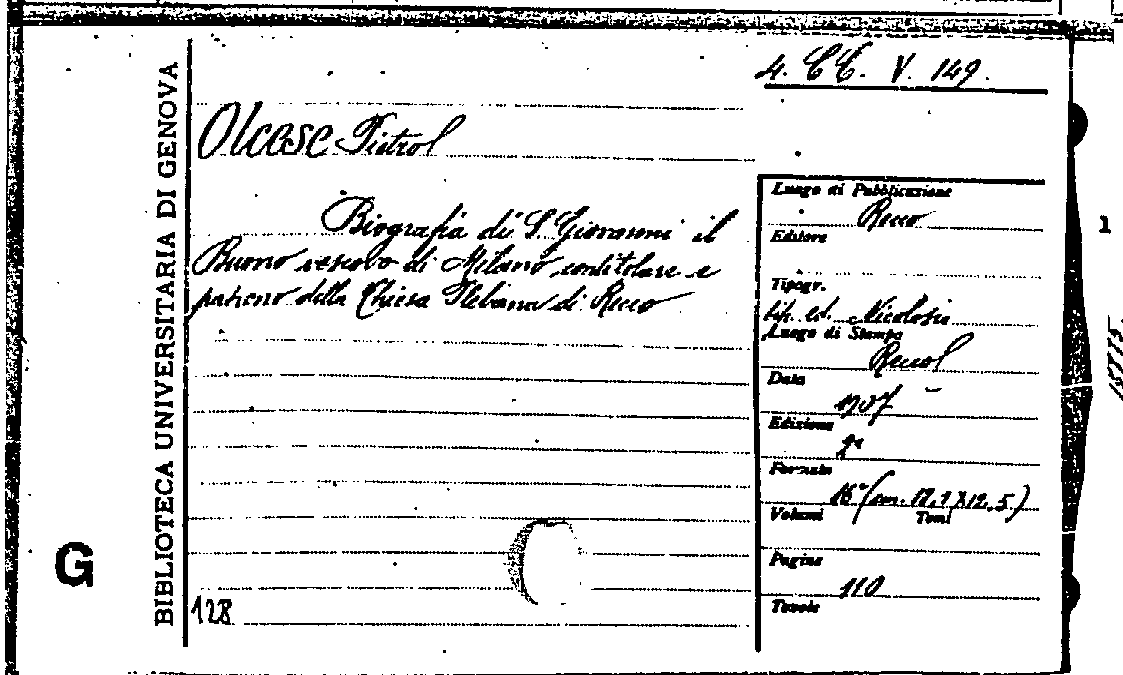 4. CC. V. 149.
Olcese Pietro
Biografia di S. Giovanni il
Buono vescovo di Milano contitolare e
patrono della Chiesa Plebana di Recco
128
BIBLIOTECA UNIVERSITARIA DI GENOVA
G
Luogo di Pubblicazione
Recco
Editore
Tipogr.
tip. ed. Nicolosio
Luogo di Stampa
Recco
Data
1907
Edizione
2ª
Formato
16° (cm. 17,7 X 12,5.)
Volumi Tomi
Pagine
110
Tavole
1